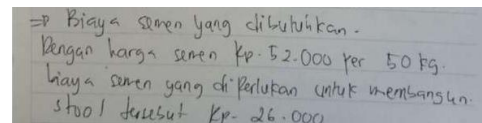 => Biaya semen yang dibutuhkan.
Dengan harga semen Rp. 52.000 per 50 kg.
biaya semen yang diperlukan untuk membangun
stool tersebut Rp. 26.000